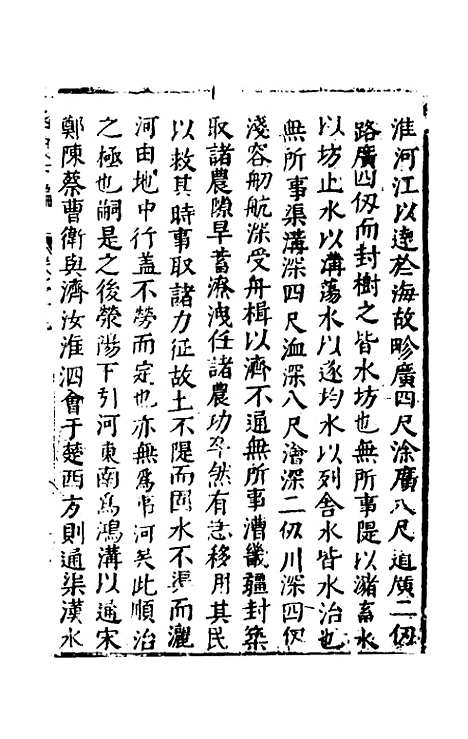 淮河江以達於海故畛廣四尺涂廣八尺道廣二仞
路廣四仞而封樹之皆水坊也無所事隄以瀦畜水
以坊止水以溝蕩水以遂均水以列舍水皆水治也
無所事渠溝深四尺洫深八尺澮深二仞川深四仞
淺容舠航深受舟楫以濟不通無所事漕畿疆封築
取諸農隙旱蓄潦洩任諸農功卒然有急移用其民
以救其時事取諸力征故土不隄而固水不渠而灑
河由地中行盖不勞而定也亦無爲弔河矣此順治
之極也嗣是之後滎陽下引河東南爲鴻溝以通宋
鄭陳蔡曹衛與濟汝淮泗會于楚西方則通渠漢水